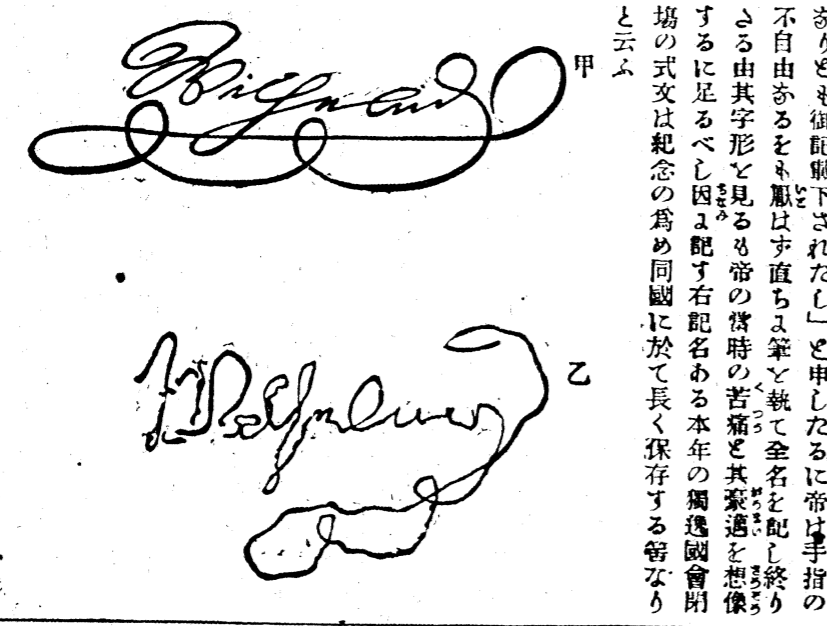 なりとも御記載下されたし」と申したるに帝は手指の
不自由なるをも厭はず直ちに筆を執て全名を記し終り
さる由其字形を見るも帝の當時の苦痛と其豪邁を想像
するに足るべし因に記す右記名ある本年の獨逸國會閉
塲の式文は紀念の爲め同國に於て長く保存する筈なり
と云ふ
甲
乙